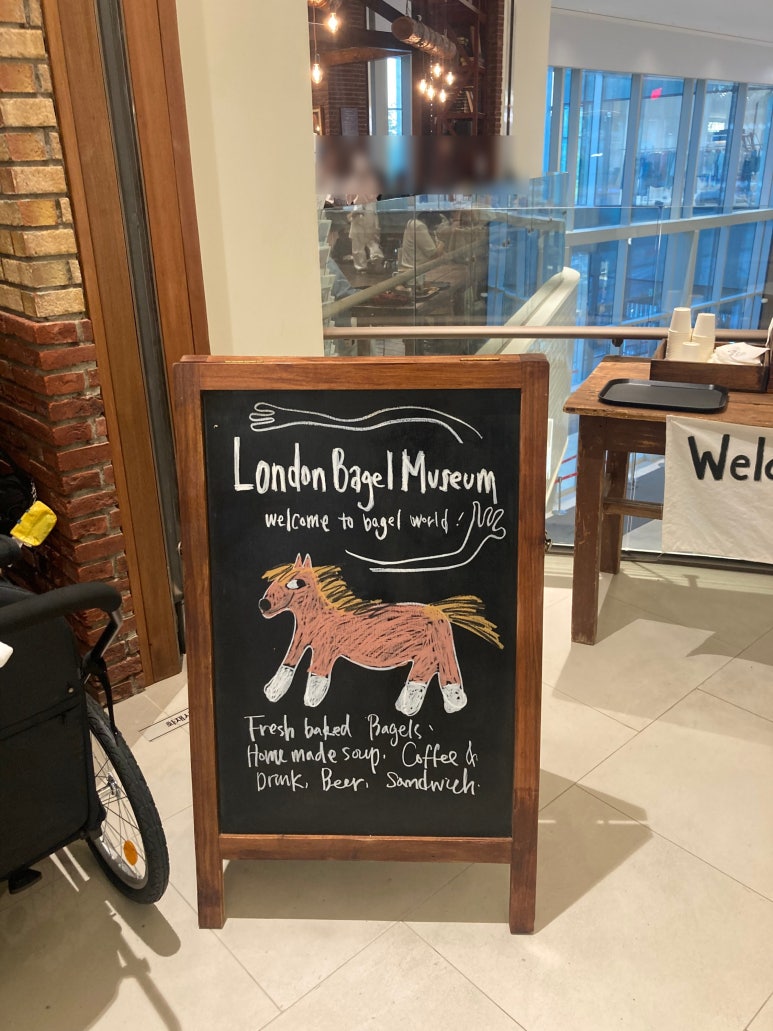 London Bagel Museum
welcome to bagel world!
Welc
Fresh baked Bagels.
Home made soup. Coffee &
Drink, Beer, Sandwich.